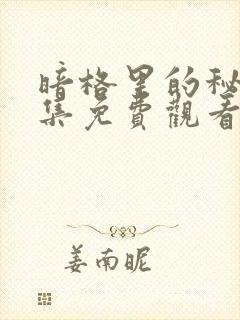 暗格里的秘
集免費觀看
姜南昵